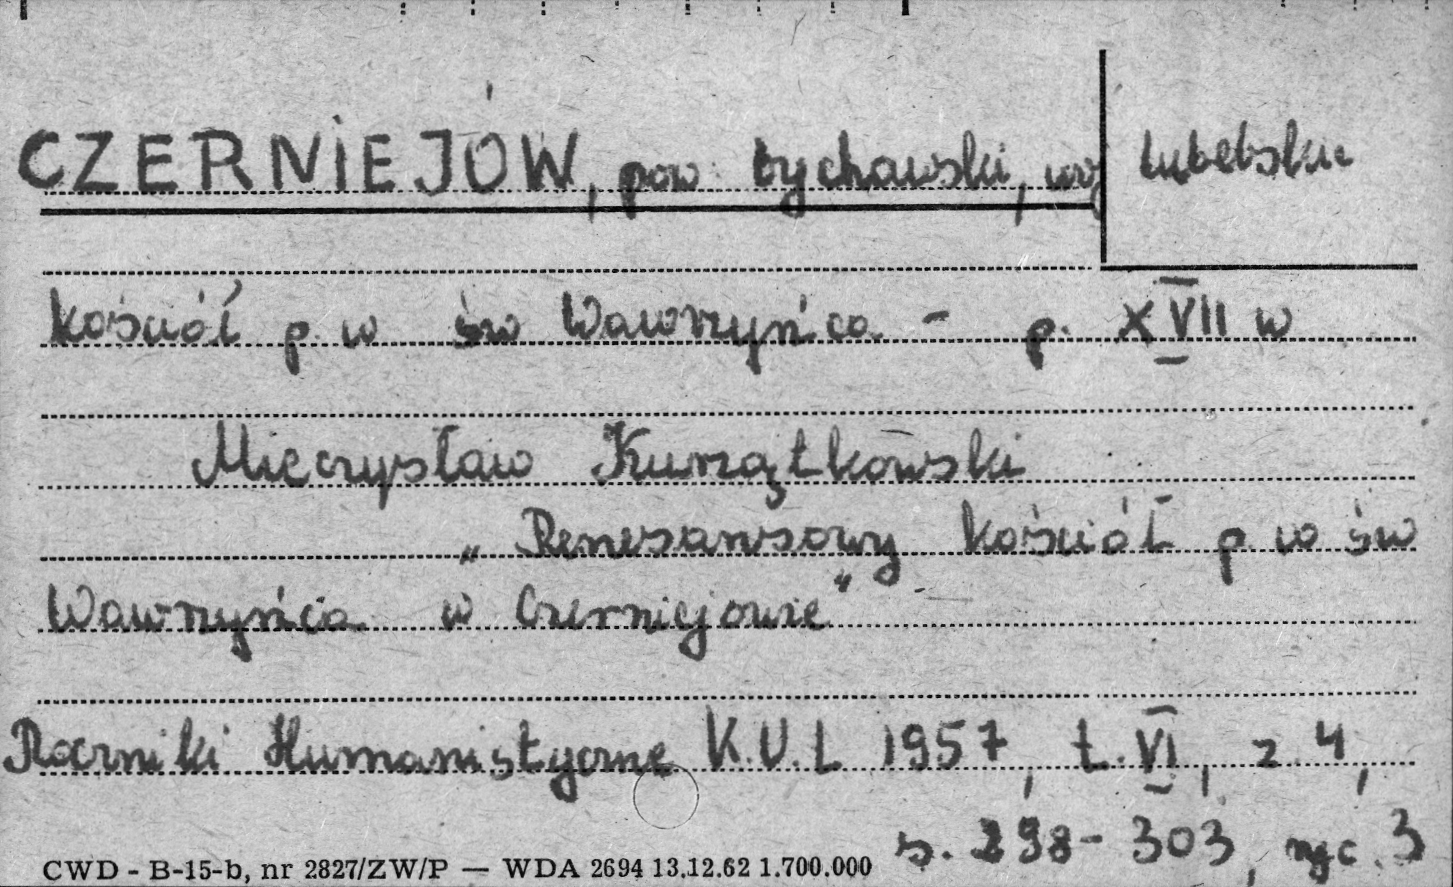 CZERNIEJÓW, pow. bychawski, woj lubelskie
Kościół p.w św Wawrzyńca - p. XVII w
Mieczysław Kurzątkowski
„Renesansowy kościół p.w św
Wawrzyńca w Czerniejowie"
Roczniki Humanistyczne K.U.L 1957, t. VI, z. 4,
s. 298-303, ryc. 3
CWD - B-15-b, nr 2827/ZW/P — WDA 2694 13.12.62 1.700.000